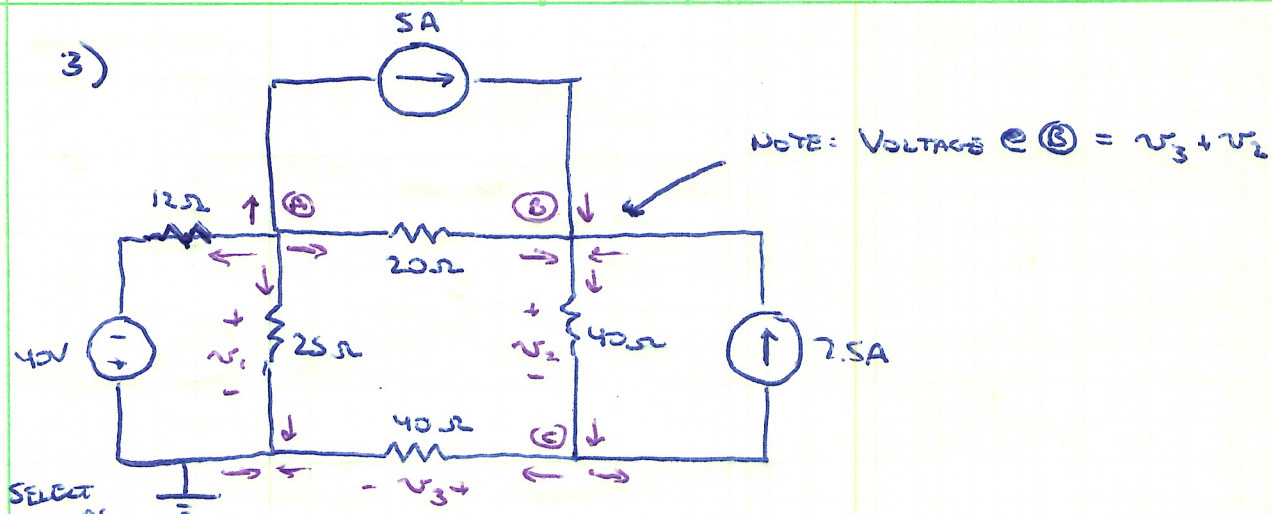 5A
3)
NOTE: VOLTAGE @ Ⓑ = v₃ + v₂
12Ω
Ⓐ
Ⓑ
20Ω
-
+
40V
+
v₁
-
25Ω
+
v₂
-
40Ω
7.5A
40Ω
Ⓒ
- v₃ +
SELECT